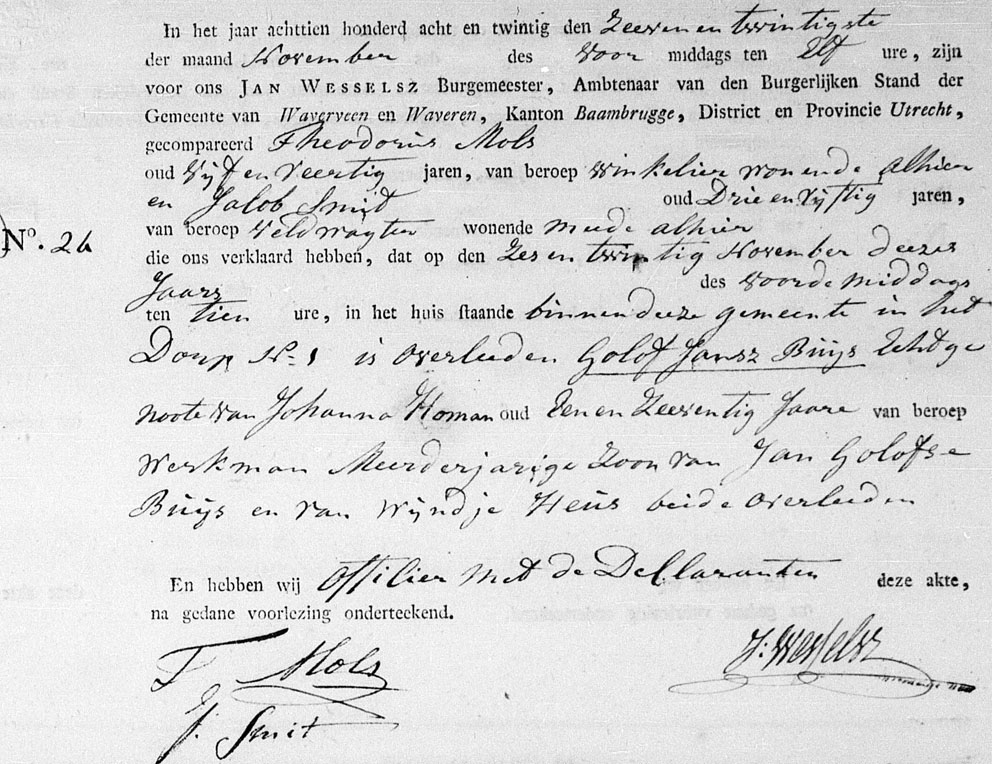 In het jaar achttien honderd acht en twintig den Zeeven en twintigste
der maand November des voor middags ten Elf ure, zijn
voor ons JAN WESSELSZ Burgemeester, Ambtenaar van den Burgerlijken Stand der
Gemeente van Waverveen en Waveren, Kanton Baambrugge, District en Provincie Utrecht,
gecompareerd Theodorus Mols
oud Vijf en Veertig jaren, van beroep Winkelier wonende alhier
en Jacob Smit oud Drie en Vijftig jaren,
No. 26
van beroep Veldwagter wonende meede alhier
die ons verklaard hebben, dat op den Zes en twintig November deezes
Jaars des voorde middags
ten tien ure, in het huis staande binnen deeze gemeente in het
Dorp No. 1 is overleeden Golof Jansz Buijs Echtge
noote van Johanna Homan oud Een en Zeeventig Jaare van beroep
Werkman Meerderjarige Zoon van Jan Golofse
Buijs en van Wijndje Heus beide overleeden
En hebben wij Officier met de Declaranten deze akte,
na gedane voorlezing onderteekend.
T Mols
J: Wesselsz
J. Smit